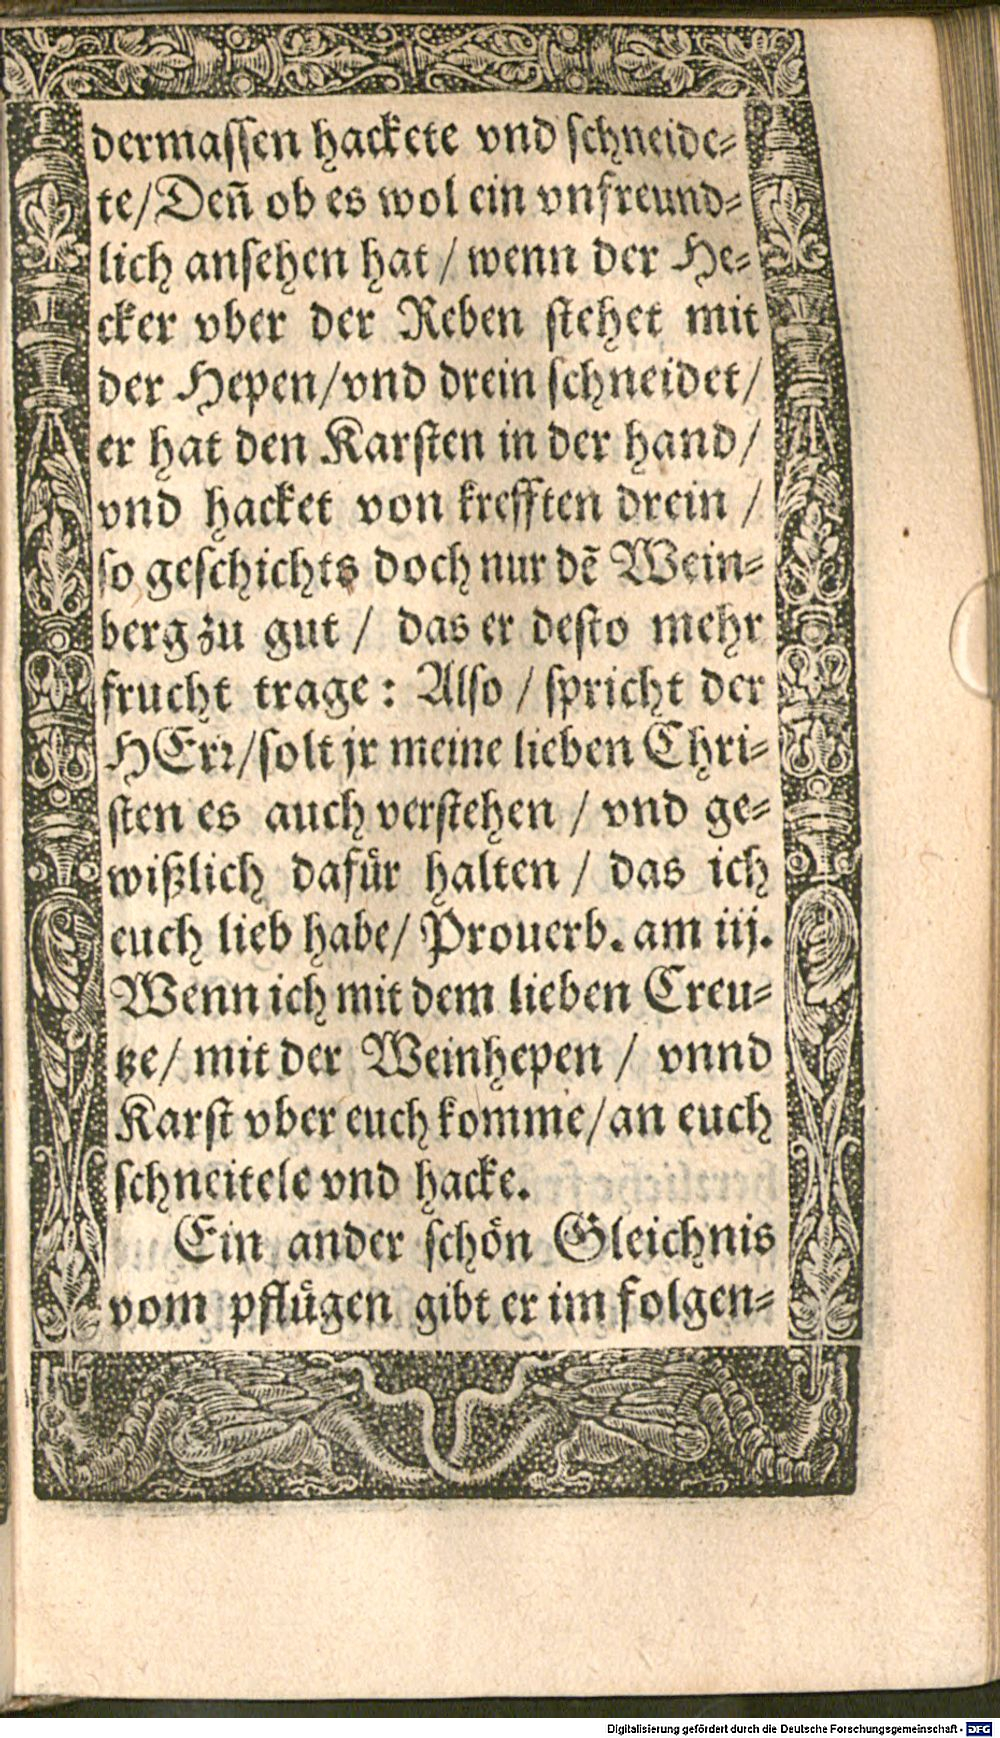 dermassen hackete vnd schneide⸗
te/Deñ ob es wol ein vnfreund⸗
lich ansehen hat / wenn der He⸗
cker vber der Reben stehet mit
der Hepen/vnd drein schneidet/
er hat den Karsten in der hand/
vnd hacket von krefften drein /
so geschichts doch nur dē Wein⸗
berg zu gut / das er desto mehr
frucht trage : Also / spricht der
HErr/solt jr meine lieben Chri⸗
sten es auch verstehen / vnd ge⸗
wißlich dafür halten / das ich
euch lieb habe/ Prouerb. am iij.
Wenn ich mit dem lieben Creu⸗
tze/ mit der Weinhepen / vnnd
Karst vber euch komme/an euch
schneitele vnd hacke.
Ein ander schön Gleichnis
vom pflügen gibt er im folgen⸗
Digitalisierung gefördert durch die Deutsche Forschungsgemeinschaft - DFG